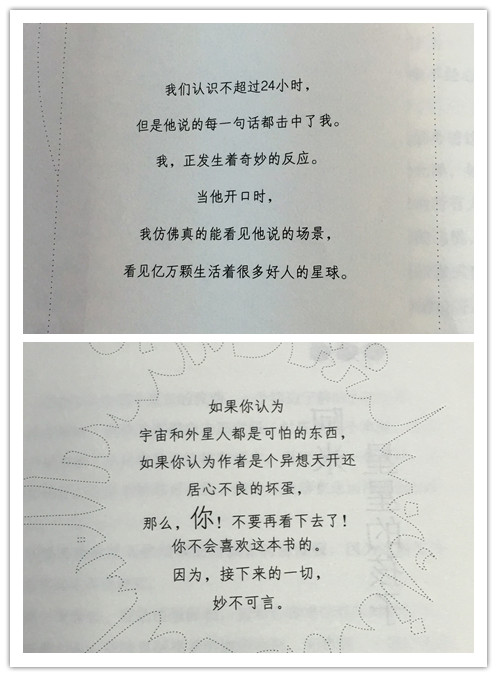 我们认识不超过24小时，
但是他说的每一句话都击中了我。
我，正发生着奇妙的反应。
当他开口时，
我仿佛真的能看见他说的场景，
看见亿万颗生活着很多好人的星球。
如果你认为
宇宙和外星人都是可怕的东西，
如果你认为作者是个异想天开还
居心不良的坏蛋，
那么，你！不要再看下去了！
你不会喜欢这本书的。
因为，接下来的一切，
妙不可言。